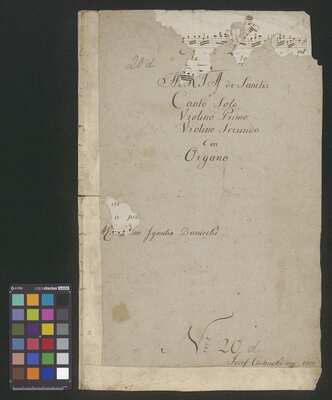 20 d
ARIA de Sanctis
Canto Solo
Violino Primo
Violino Secundo
Con
Organo
Ignatio
Nro 20. d
Josef